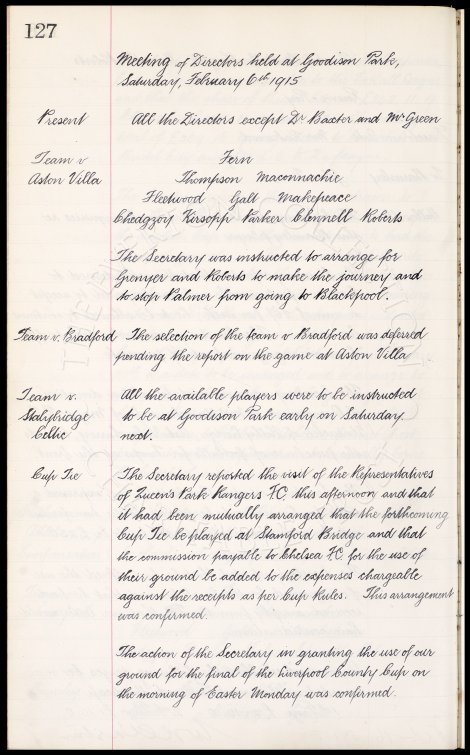 127
Meeting of Directors held at Goodison Park,
Saturday, February 6th 1915
Present All the Directors except Dr Baxter and Mr Green
Team v Fern
Aston Villa Thompson Maconnachie
Fleetwood Galt Makepeace
Chedgzoy Kirsopp Parker Clennell Roberts
The Secretary was instructed to arrange for
Grenyer and Roberts to make the journey and
to stop Palmer from going to Blackpool.
Team v. Bradford The selection of the team v Bradford was deferred
pending the report on the game at Aston Villa
Team v. All the available players were to be instructed
Stalybridge to be at Goodison Park early on Saturday
Celtic next.
Cup Tie The Secretary reported the visit of the Representatives
of Queen's Park Rangers F.C. this afternoon and that
it had been mutually arranged that the forthcoming
Cup Tie be played at Stamford Bridge and that
the commission payable to Chelsea F.C. for the use of
their ground be added to the expenses chargeable
against the receipts as per Cup Rules. This arrangement
was confirmed.
The action of the Secretary in granting the use of our
ground for the final of the Liverpool County Cup on
the morning of Easter Monday was confirmed.